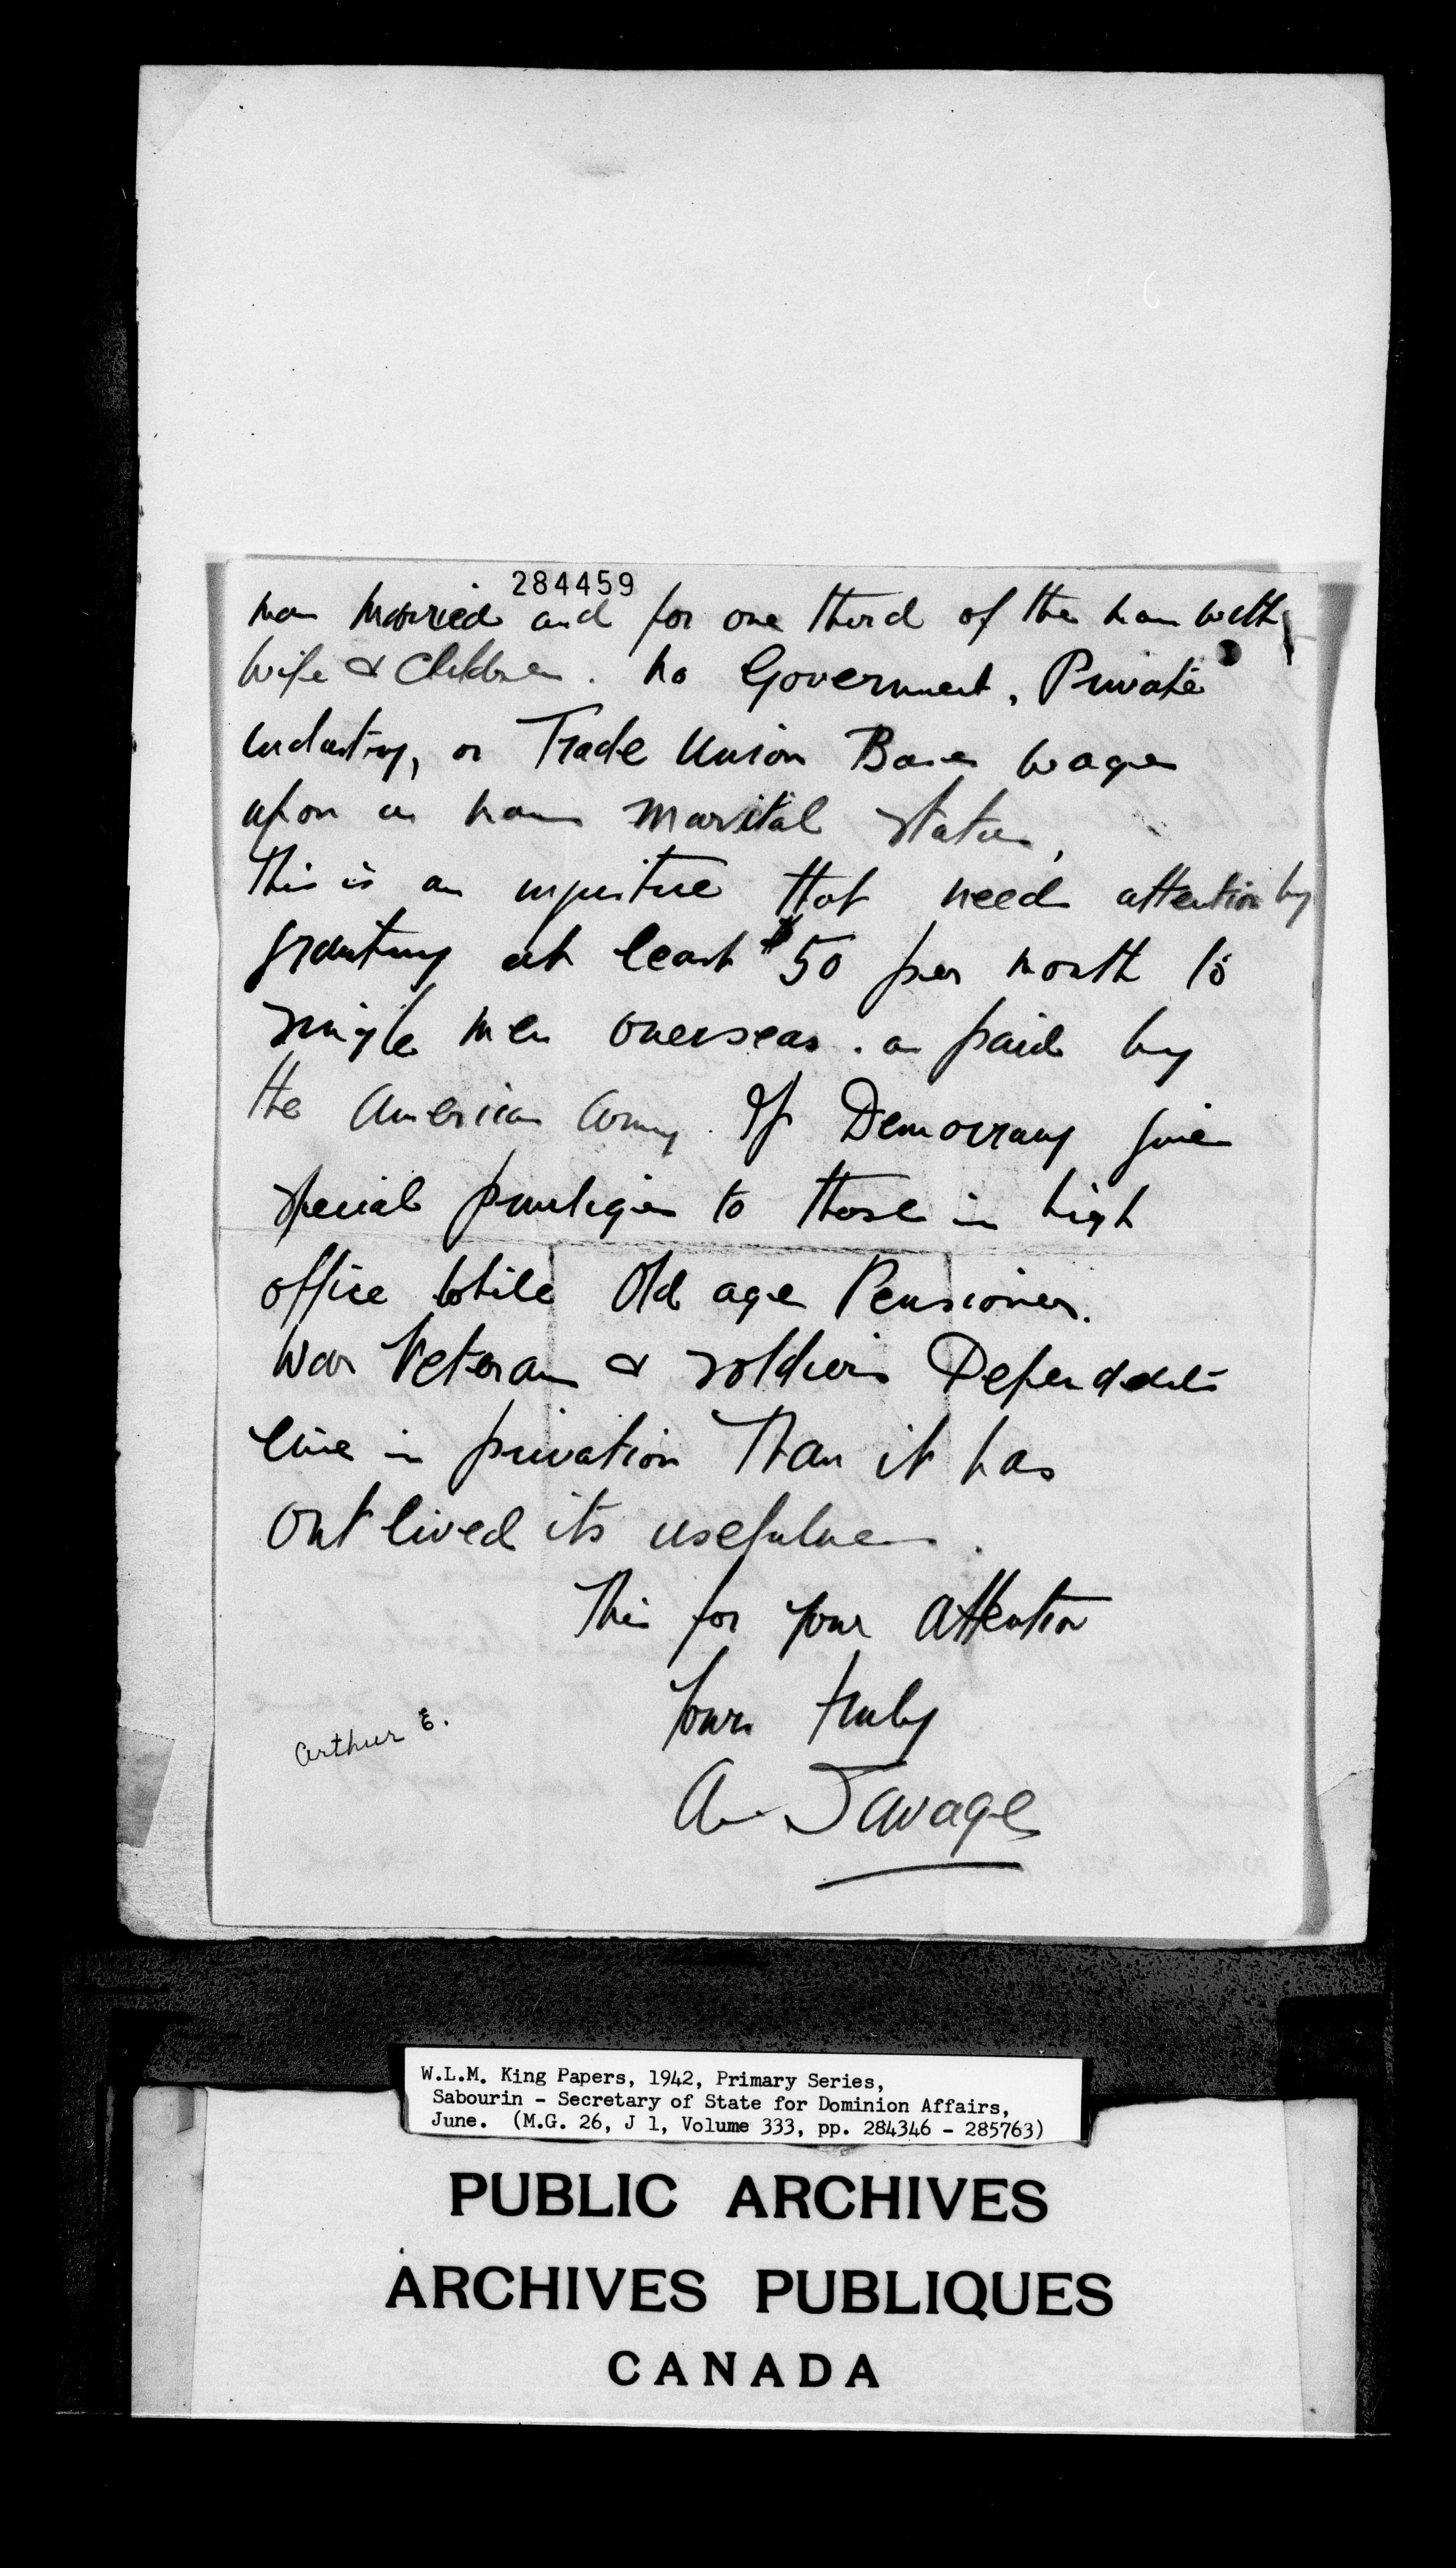 284459
man married and for one third of the man with
wife & children. no Government, Private
industry, or Trade Union Bases wages
upon a mans marital status,
This is an injustice that need attention by
granting at least $50 per month to
single men overseas. as paid by
the American Army. If Democracy gives
special privileges to those in high
office while Old age Pensioners.
War Veterans & soldiers Dependents
live in privation Than it has
out lived its usefulness.
This for your attention
Yours truly
Arthur E.
A. Savage
W.L.M. King Papers, 1942, Primary Series,
Sabourin - Secretary of State for Dominion Affairs,
June. (M.G. 26, J 1, Volume 333, pp. 284346 - 285763)
PUBLIC ARCHIVES
ARCHIVES PUBLIQUES
CANADA